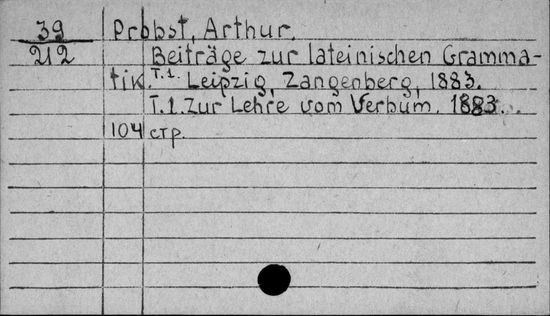 39
212
Probst, Arthur.
Beiträge zur lateinischen Gramma-
tik. T.1. Leipzig, Zangenberg, 1883.
T.1. Zur Lehre vom Verbum. 1883.
104 стр.